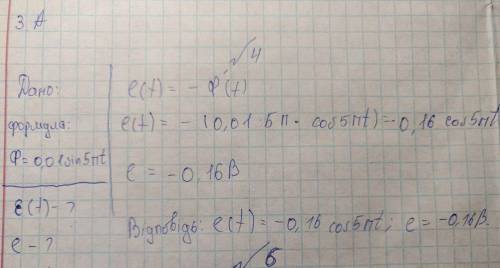 3 A
√4
Дано:
формула:
Ф = 0,01 sin 5πt
e(t) - ?
e - ?
e(t) = - Ф'(t)
e(t) = - (0,01 · 5π · cos5πt) = -0,16 cos5πt
e = -0,16 В
Відповідь: e(t) = -0,16 cos5πt; e = -0,16 В.
√6